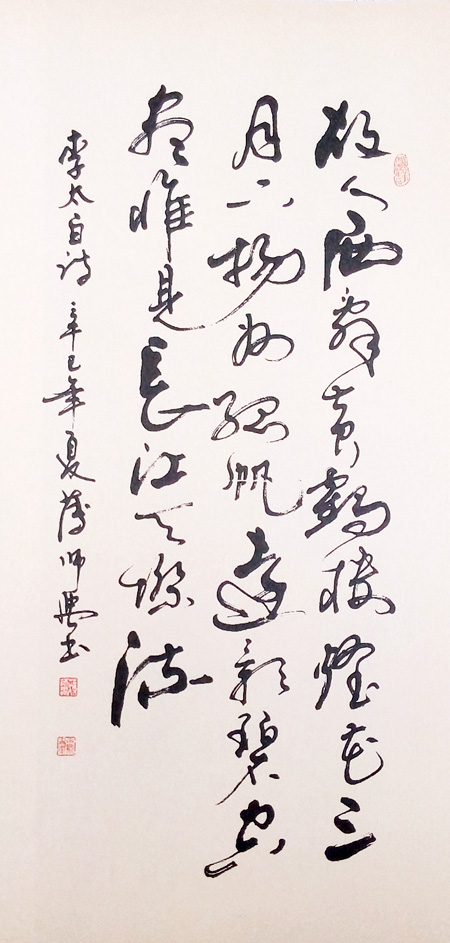 故人西辞黄鹤楼烟花三
月下扬州孤帆远影碧空
尽惟见长江天际流
李太白诗 辛巳年夏 师 书